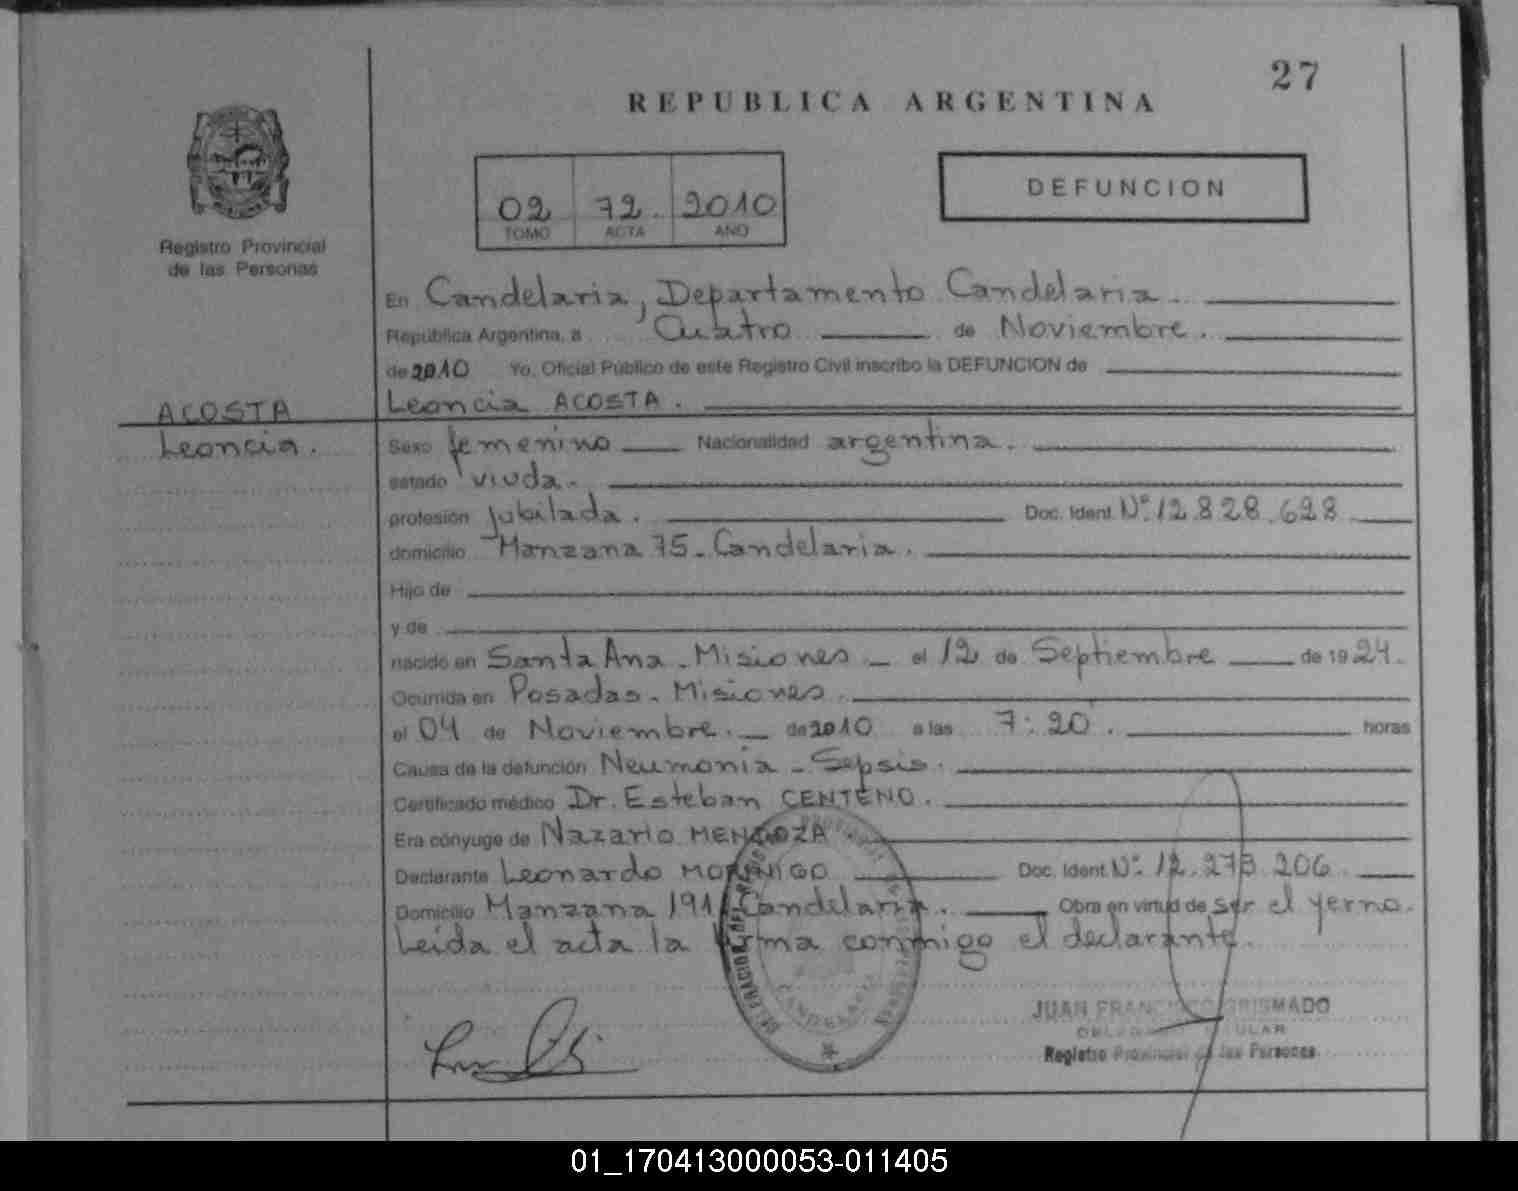 27
REPUBLICA ARGENTINA
02 72. 2010
TOMO ACTA AÑO
DEFUNCION
Registro Provincial
de las Personas
En Candelaria, Departamento Candelaria.
República Argentina, a Cuatro de Noviembre.
de 2010 Yo, Oficial Público de este Registro Civil inscribo la DEFUNCION de
ACOSTA Leoncia ACOSTA.
Leoncia. Sexo femenino Nacionalidad argentina.
estado viuda.
profesión jubilada. Doc. Ident. Nº 12.828.628
domicilio Manzana 75 - Candelaria.
Hijo de
y de
nacido en Santa Ana - Misiones - el 12 de Septiembre de 1924.
Ocurrida en Posadas - Misiones.
el 04 de Noviembre. de 2010 a las 7:20. horas
Causa de la defunción Neumonia - Sepsis.
Certificado médico Dr. Esteban CENTENO.
Era cónyuge de Nazario MENDOZA.
Declarante Leonardo MORINIGO Doc. Ident. Nº 12.273.206
Domicilio Manzana 191 Candelaria. Obra en virtud de ser el yerno.
Leida el acta la firma conmigo el declarante.
CANDELARIA
JUAN FRANCISCO GRISMADO
Registro Provincial de las Personas
01_170413000053-011405